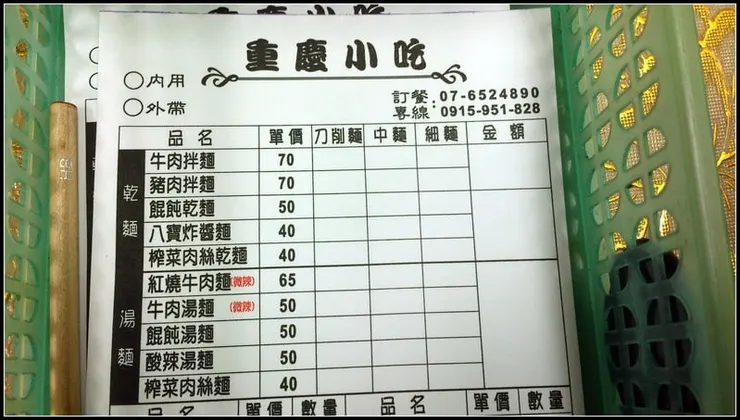 重慶小吃
○內用
○外帶
訂餐專線:07-6524890
0915-951-828
品名 單價 刀削麵 中麵 細麵 金額
乾麵
牛肉拌麵 70
豬肉拌麵 70
餛飩乾麵 50
八寶炸醬麵 40
榨菜肉絲乾麵 40
湯麵
紅燒牛肉麵(微辣) 65
牛肉湯麵(微辣) 50
餛飩湯麵 50
酸辣湯麵 50
榨菜肉絲麵 40
品名 單價 數量 品名 單價 數量